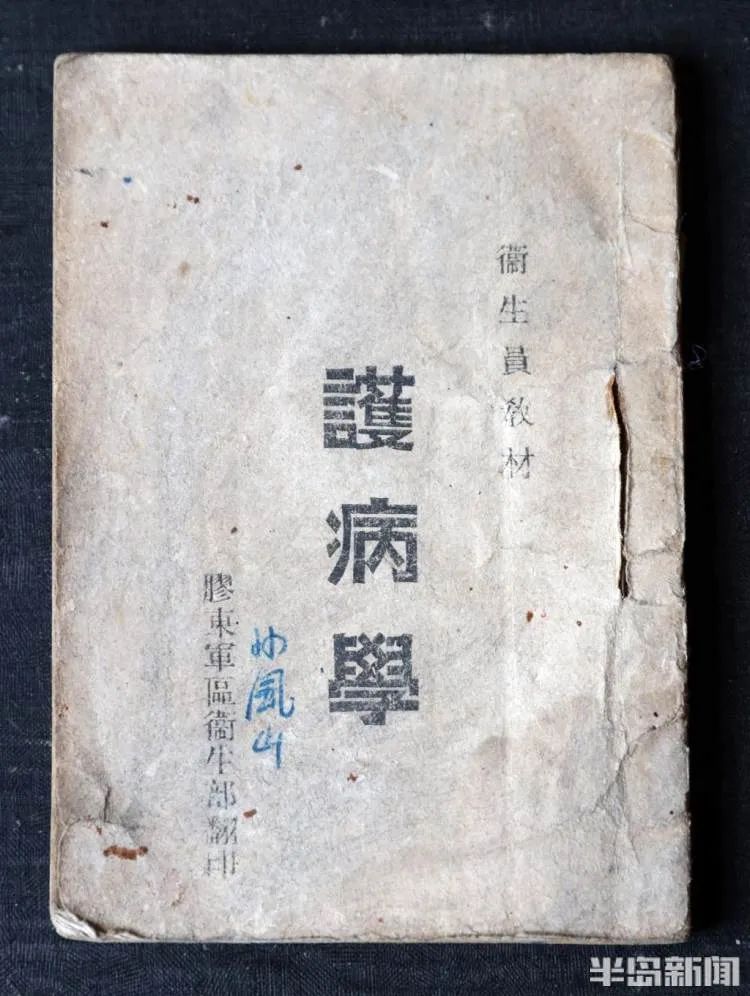 衞生員教材
護病學
妙風山
膠東軍區衞生部翻印
半岛新闻